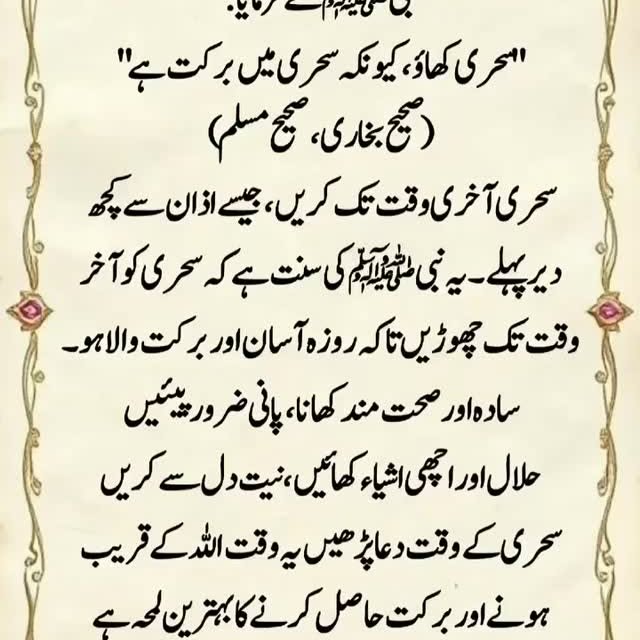 نبی ﷺ نے فرمایا:
"سحری کھاؤ، کیونکہ سحری میں برکت ہے"
(صحیح بخاری، صحیح مسلم)
سحری آخری وقت تک کریں، جیسے اذان سے کچھ
دیر پہلے۔ یہ نبی ﷺ کی سنت ہے کہ سحری کو آخر
وقت تک چھوڑیں تاکہ روزہ آسان اور برکت والا ہو۔
سادہ اور صحت مند کھانا، پانی ضرور پیئیں
حلال اور اچھی اشیاء کھائیں، نیت دل سے کریں
سحری کے وقت دعا پڑھیں یہ وقت اللہ کے قریب
ہونے اور برکت حاصل کرنے کا بہترین لمحہ ہے